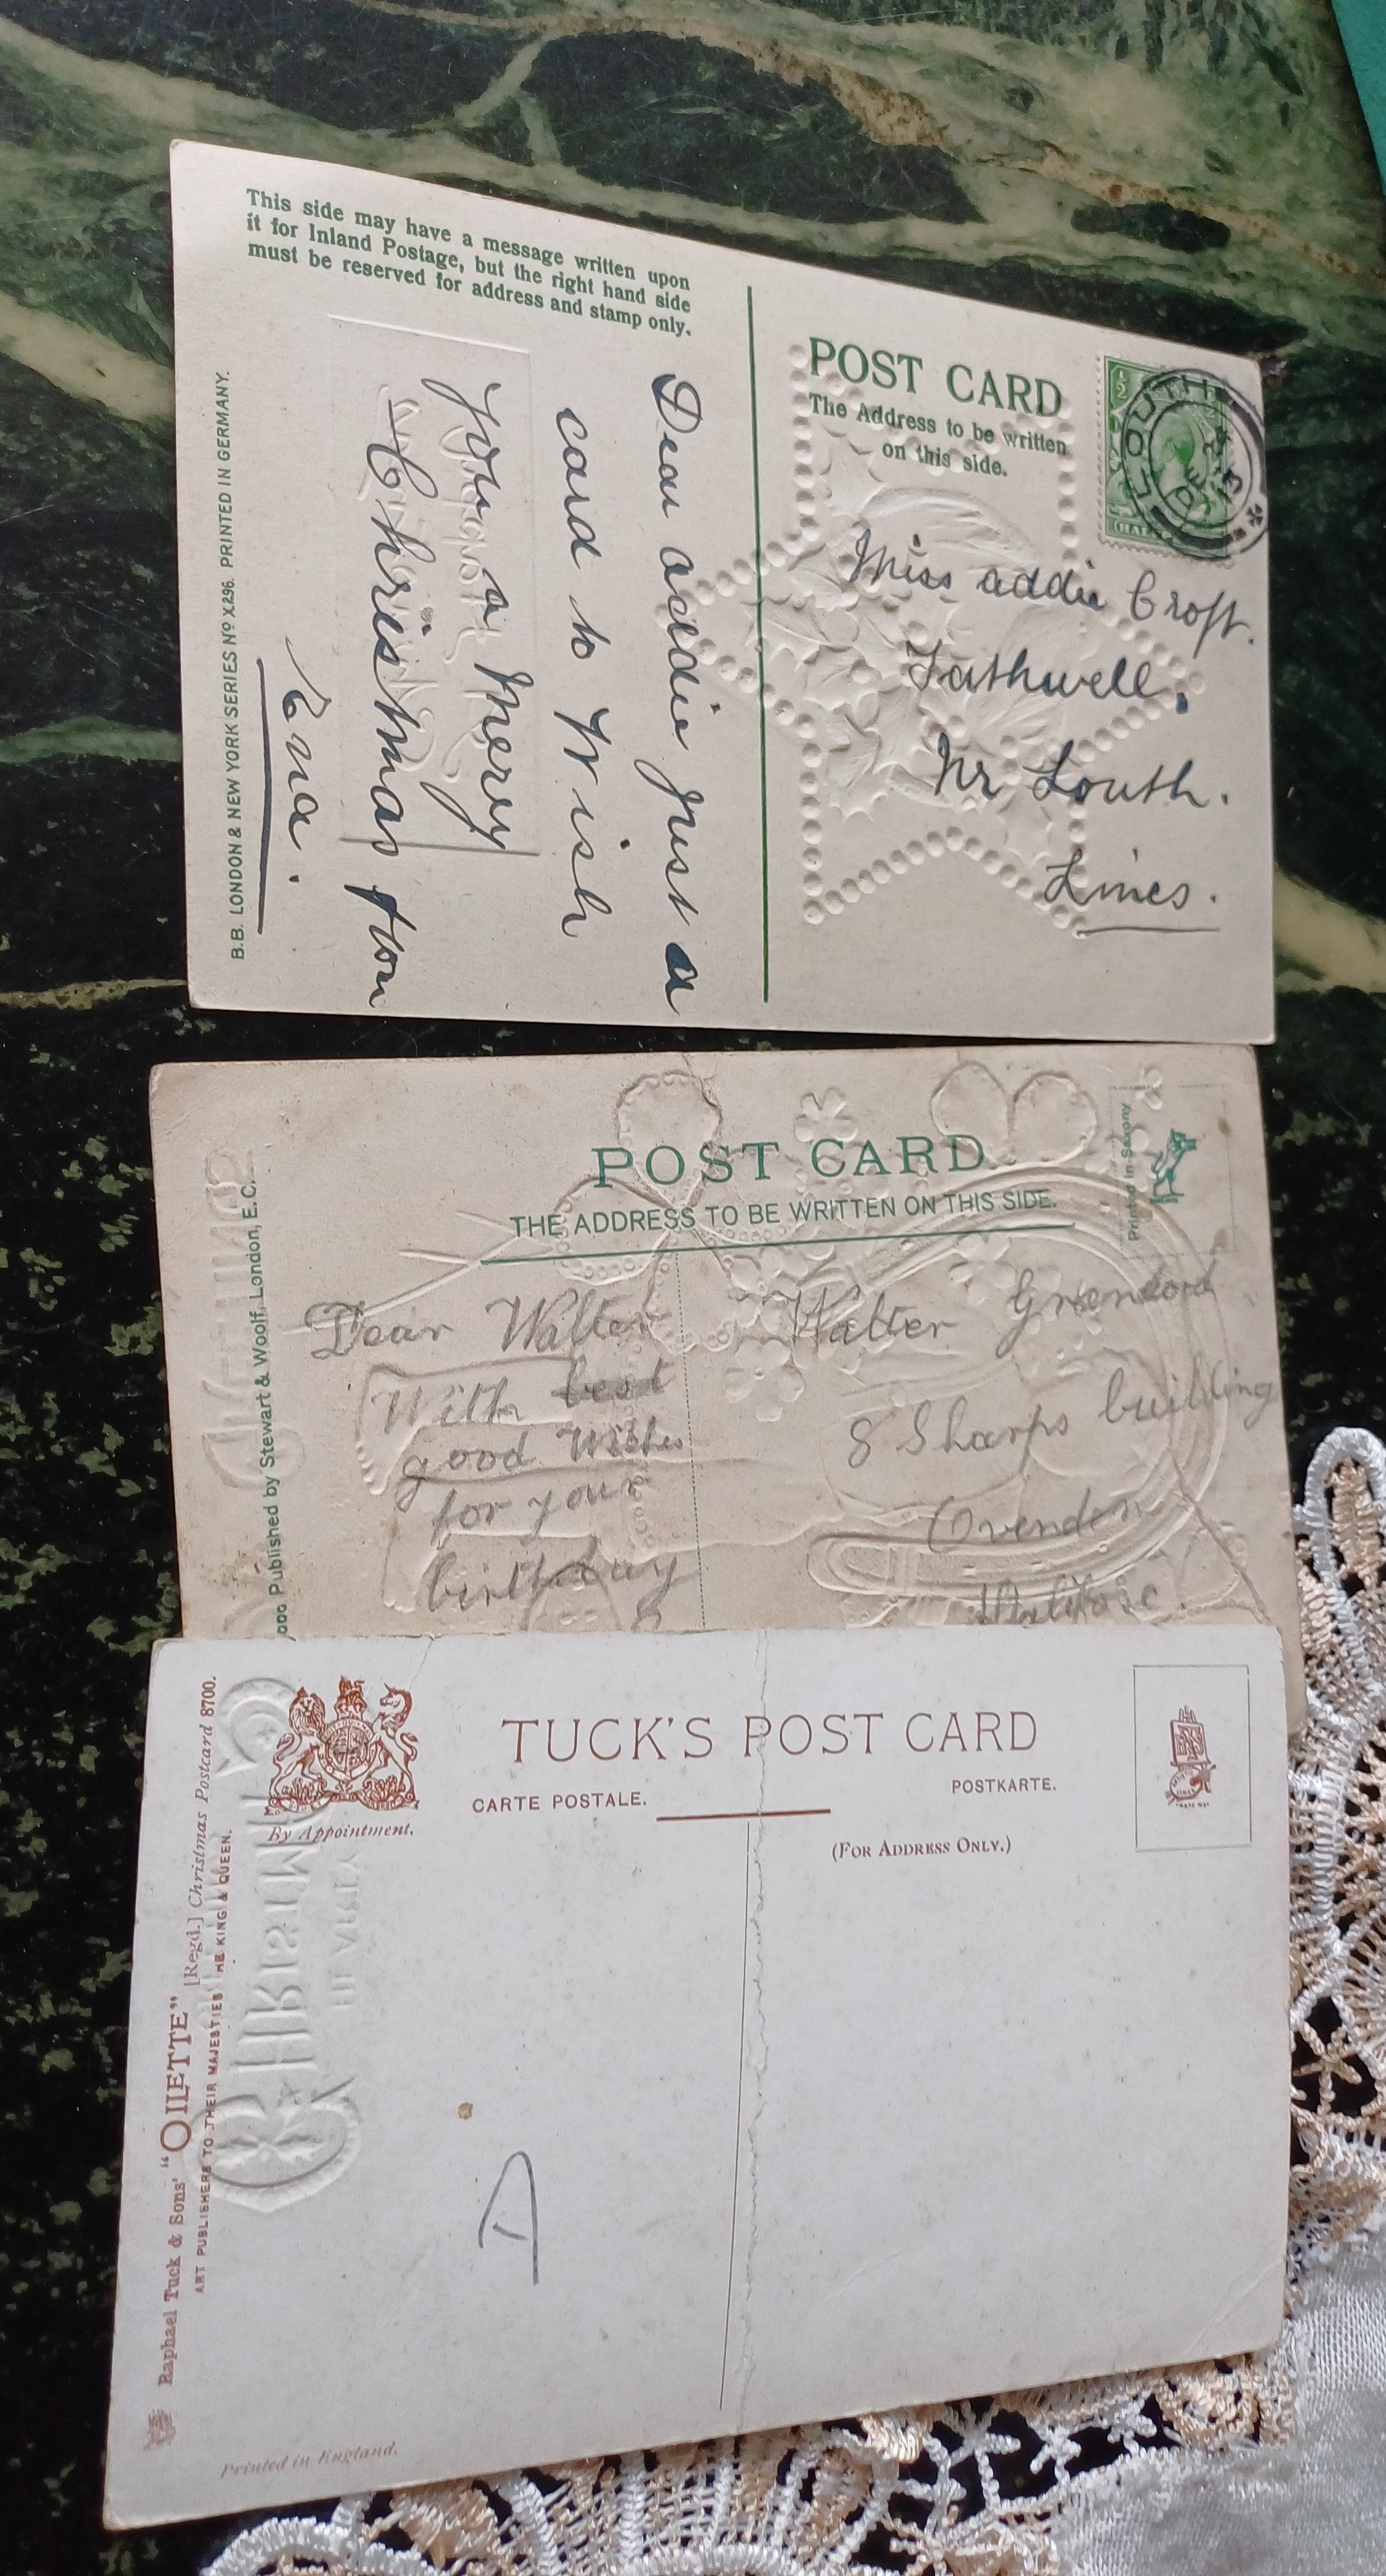 This side may have a message written upon
it for Inland Postage, but the right hand side
must be reserved for address and stamp only.
POST CARD
The Address to be written
on this side.
1/2
LOUTH
DE 24
13
Dear addie just a
card to Wish
you a Merry
Christmas from
Ena.
Miss addie Croft.
Tathwell,
Nr Louth.
Lincs.
B.B. LONDON & NEW YORK SERIES Nº X296. PRINTED IN GERMANY.
POST CARD
THE ADDRESS TO BE WRITTEN ON THIS SIDE.
Printed in Saxony
Published by Stewart & Woolf, London, E.C.
Dear Walter
With best
good Wishes
for your
birthday
Walter
8 Sharps building
Ovenden
Halifax.
TUCK'S POST CARD
CARTE POSTALE.
POSTKARTE.
(FOR ADDRESS ONLY.)
By Appointment.
Raphael Tuck & Sons' "OILETTE" [Regd.] Christmas Postcard 8700.
ART PUBLISHERS TO THEIR MAJESTIES THE KING & QUEEN.
Printed in England.
D